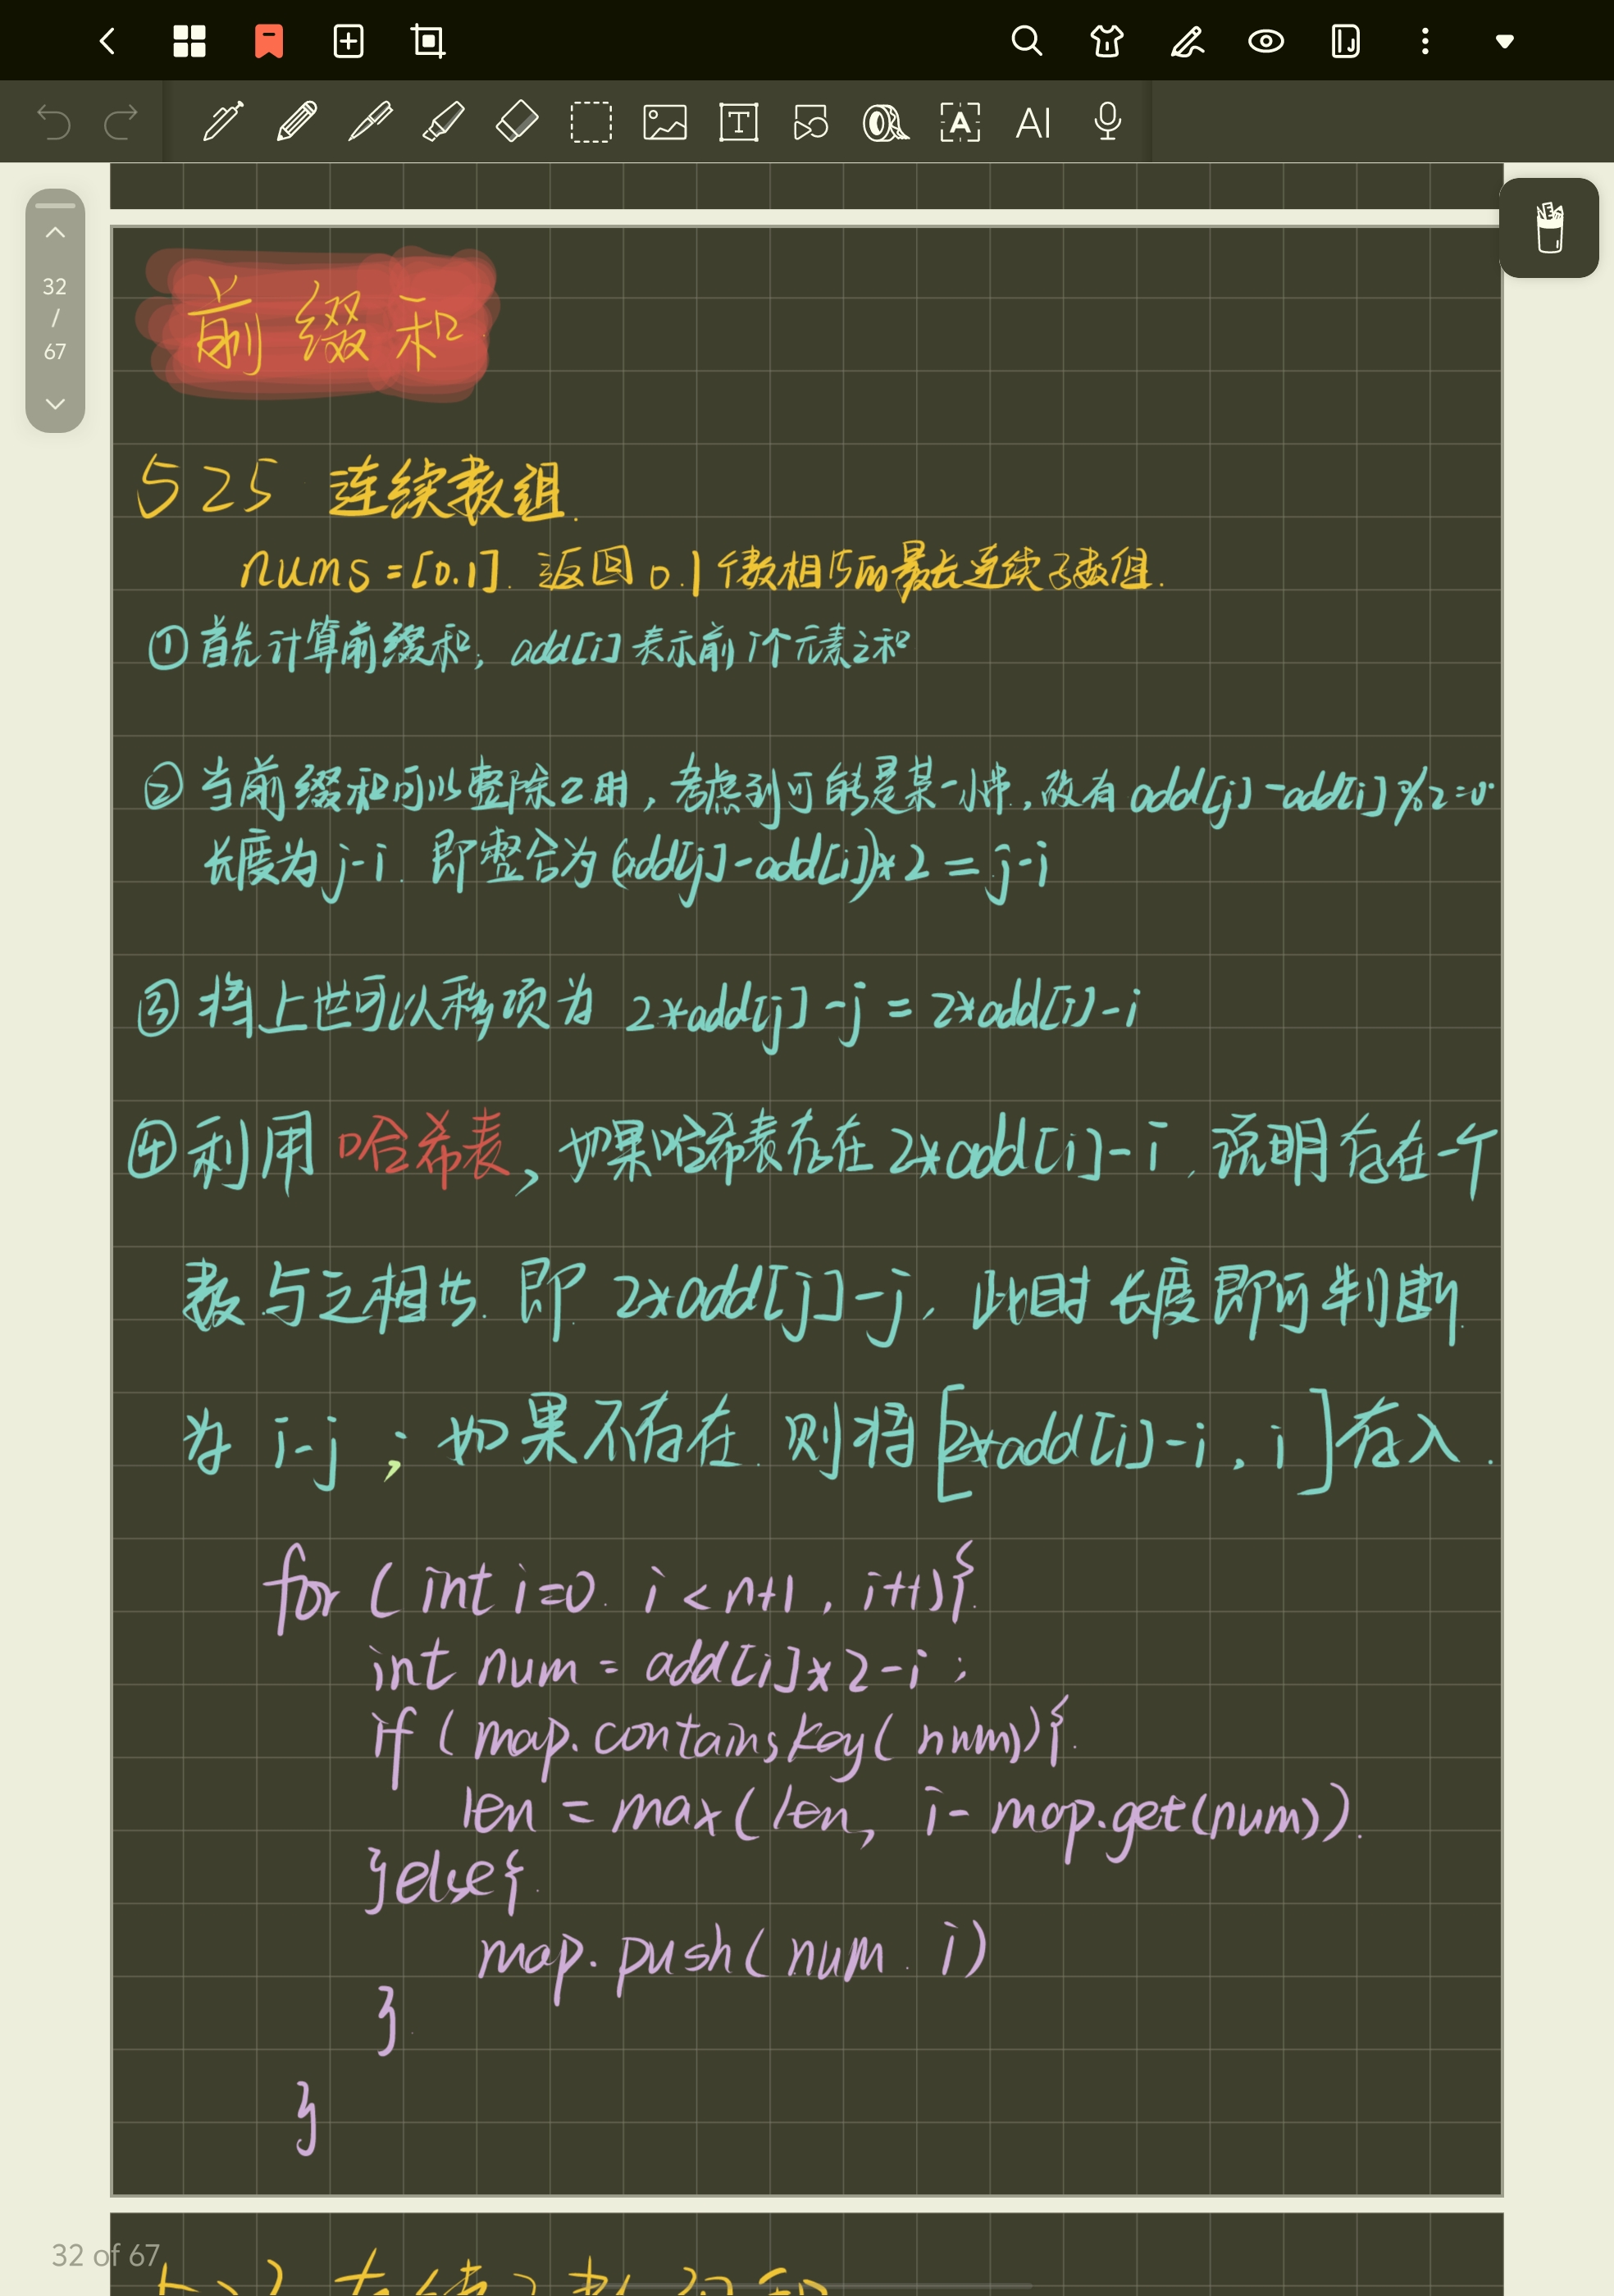 32
/
67
T
A
AI
前缀和
525 连续数组.
nums=[0.1]. 返回0.1个数相等的最长连续子数组.
①首先计算前缀和, add[i]表示前i个元素之和
②当前缀和可以整除2时,考虑到可能是某一小串,故有add[j]-add[i]%2=0.
长度为j-i. 即整合为(add[j]-add[i])*2=j-i
③将上世可以移项为 2*add[j]-j=2*add[i]-i
④利用哈希表,如果哈希表存在2*add[i]-i.说明存在一个
数与之相等.即 2*add[j]-j,此时长度即可判断.
为 i-j ; 如果不存在.则将[2*add[i]-i, i]存入.
for ( int i=0. i<n+1, i++){
int num = add[i]*2-i ;
if ( map.containsKey( num)){
len = max( len, i- map.get(num)).
}else{
map.push( num . i)
}
}
32 of 67